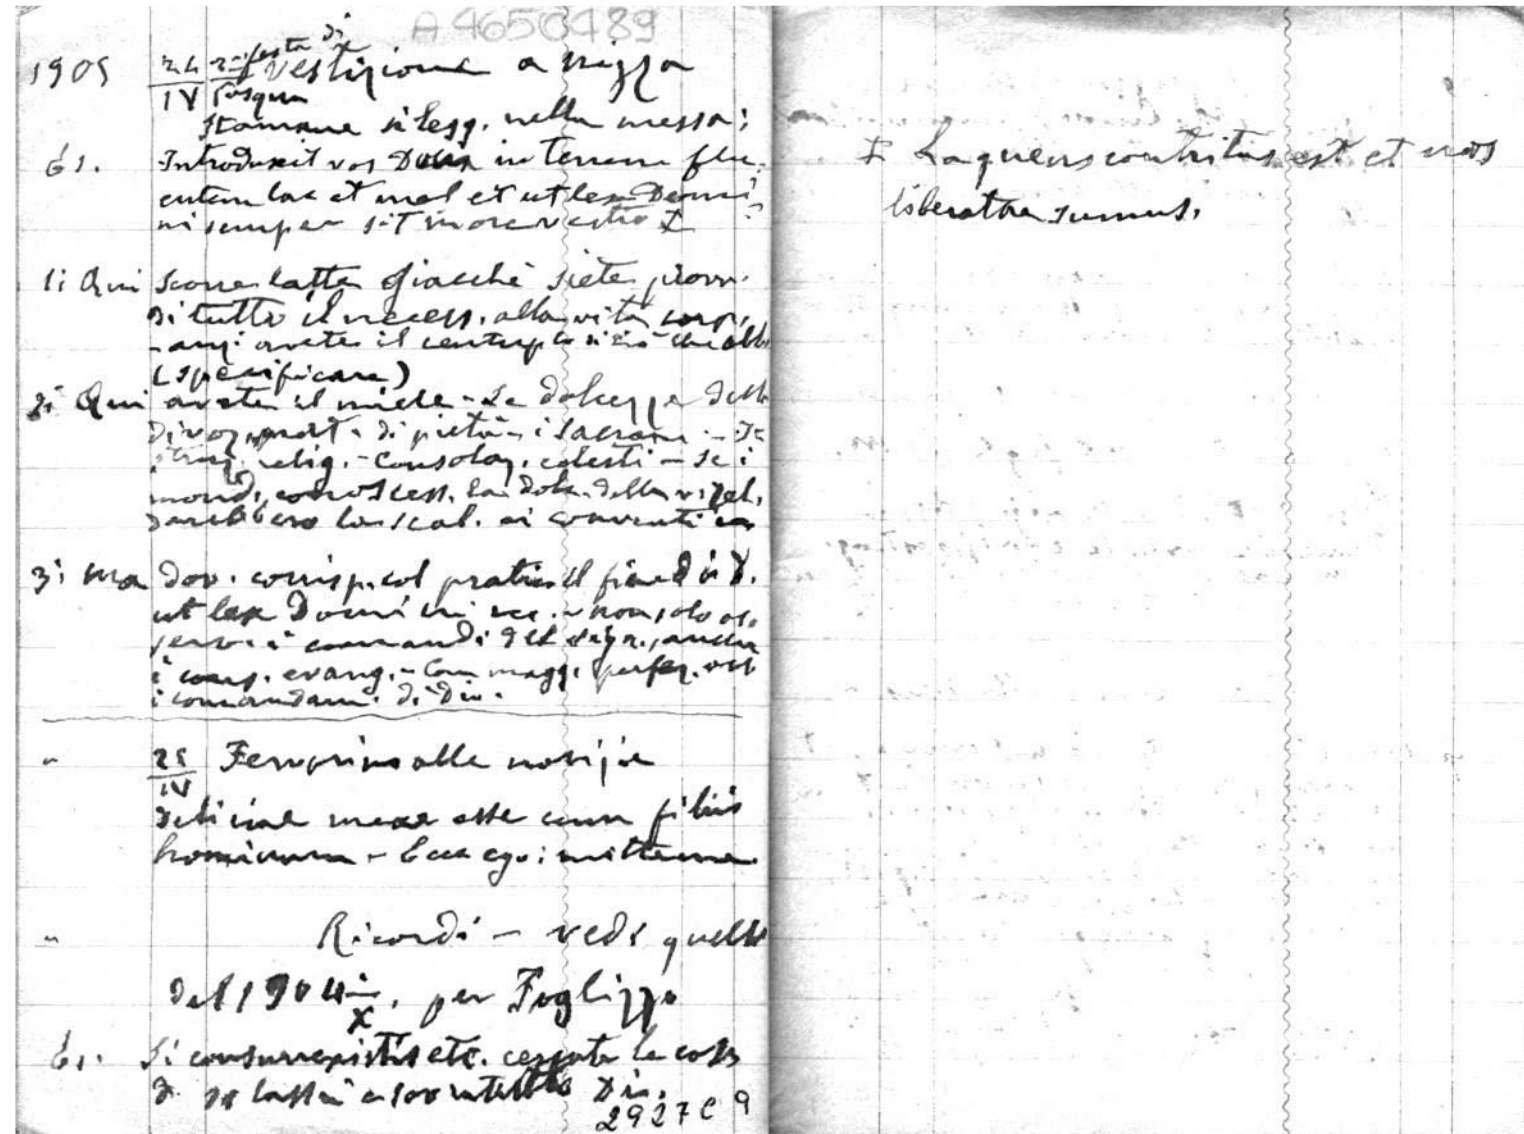 A4650489
1905 24 2ª festa di
IV Pasqua vestizione a Nizza
Stamane si legg. nella messa:
Es. Introduxit vos Dnus in terram flu-
entem lac et mel et ut lex Domi-
ni semper sit in ore vestro ‡
1: Qui scorre latte giacchè siete provv.
di tutto il necess. alla vita corp.
- anzi avete il centuplo
(specificare)
2: Qui avete il miele - Le dolcezze della
divoz. di pietà - i Sacram.
relig. - Consolaz. celesti - se i
mond. conoscess. la dolc. della v. rel.
darebbero la scal. ai conventi
3: Ma dov. corrisp. col praticare il fine
ut lex Domini ecc. - non solo os-
serv. i comandi del Sign., anche
i cons. evang. - Con magg. perfez.
i comandam. di Dio.
" 25
IV Fervorino alle novizie
Deliciae meae esse cum filiis
hominum - Ecce ego: mitte me
" Ricordi - vedi quelli
del 1904
X, per Foglizzo
Es. Si consurrexistis etc. cercate le cose
di lassù e sovratutto Dio.
2927 C 9
‡ Laqueus contritus est et nos
liberati sumus.